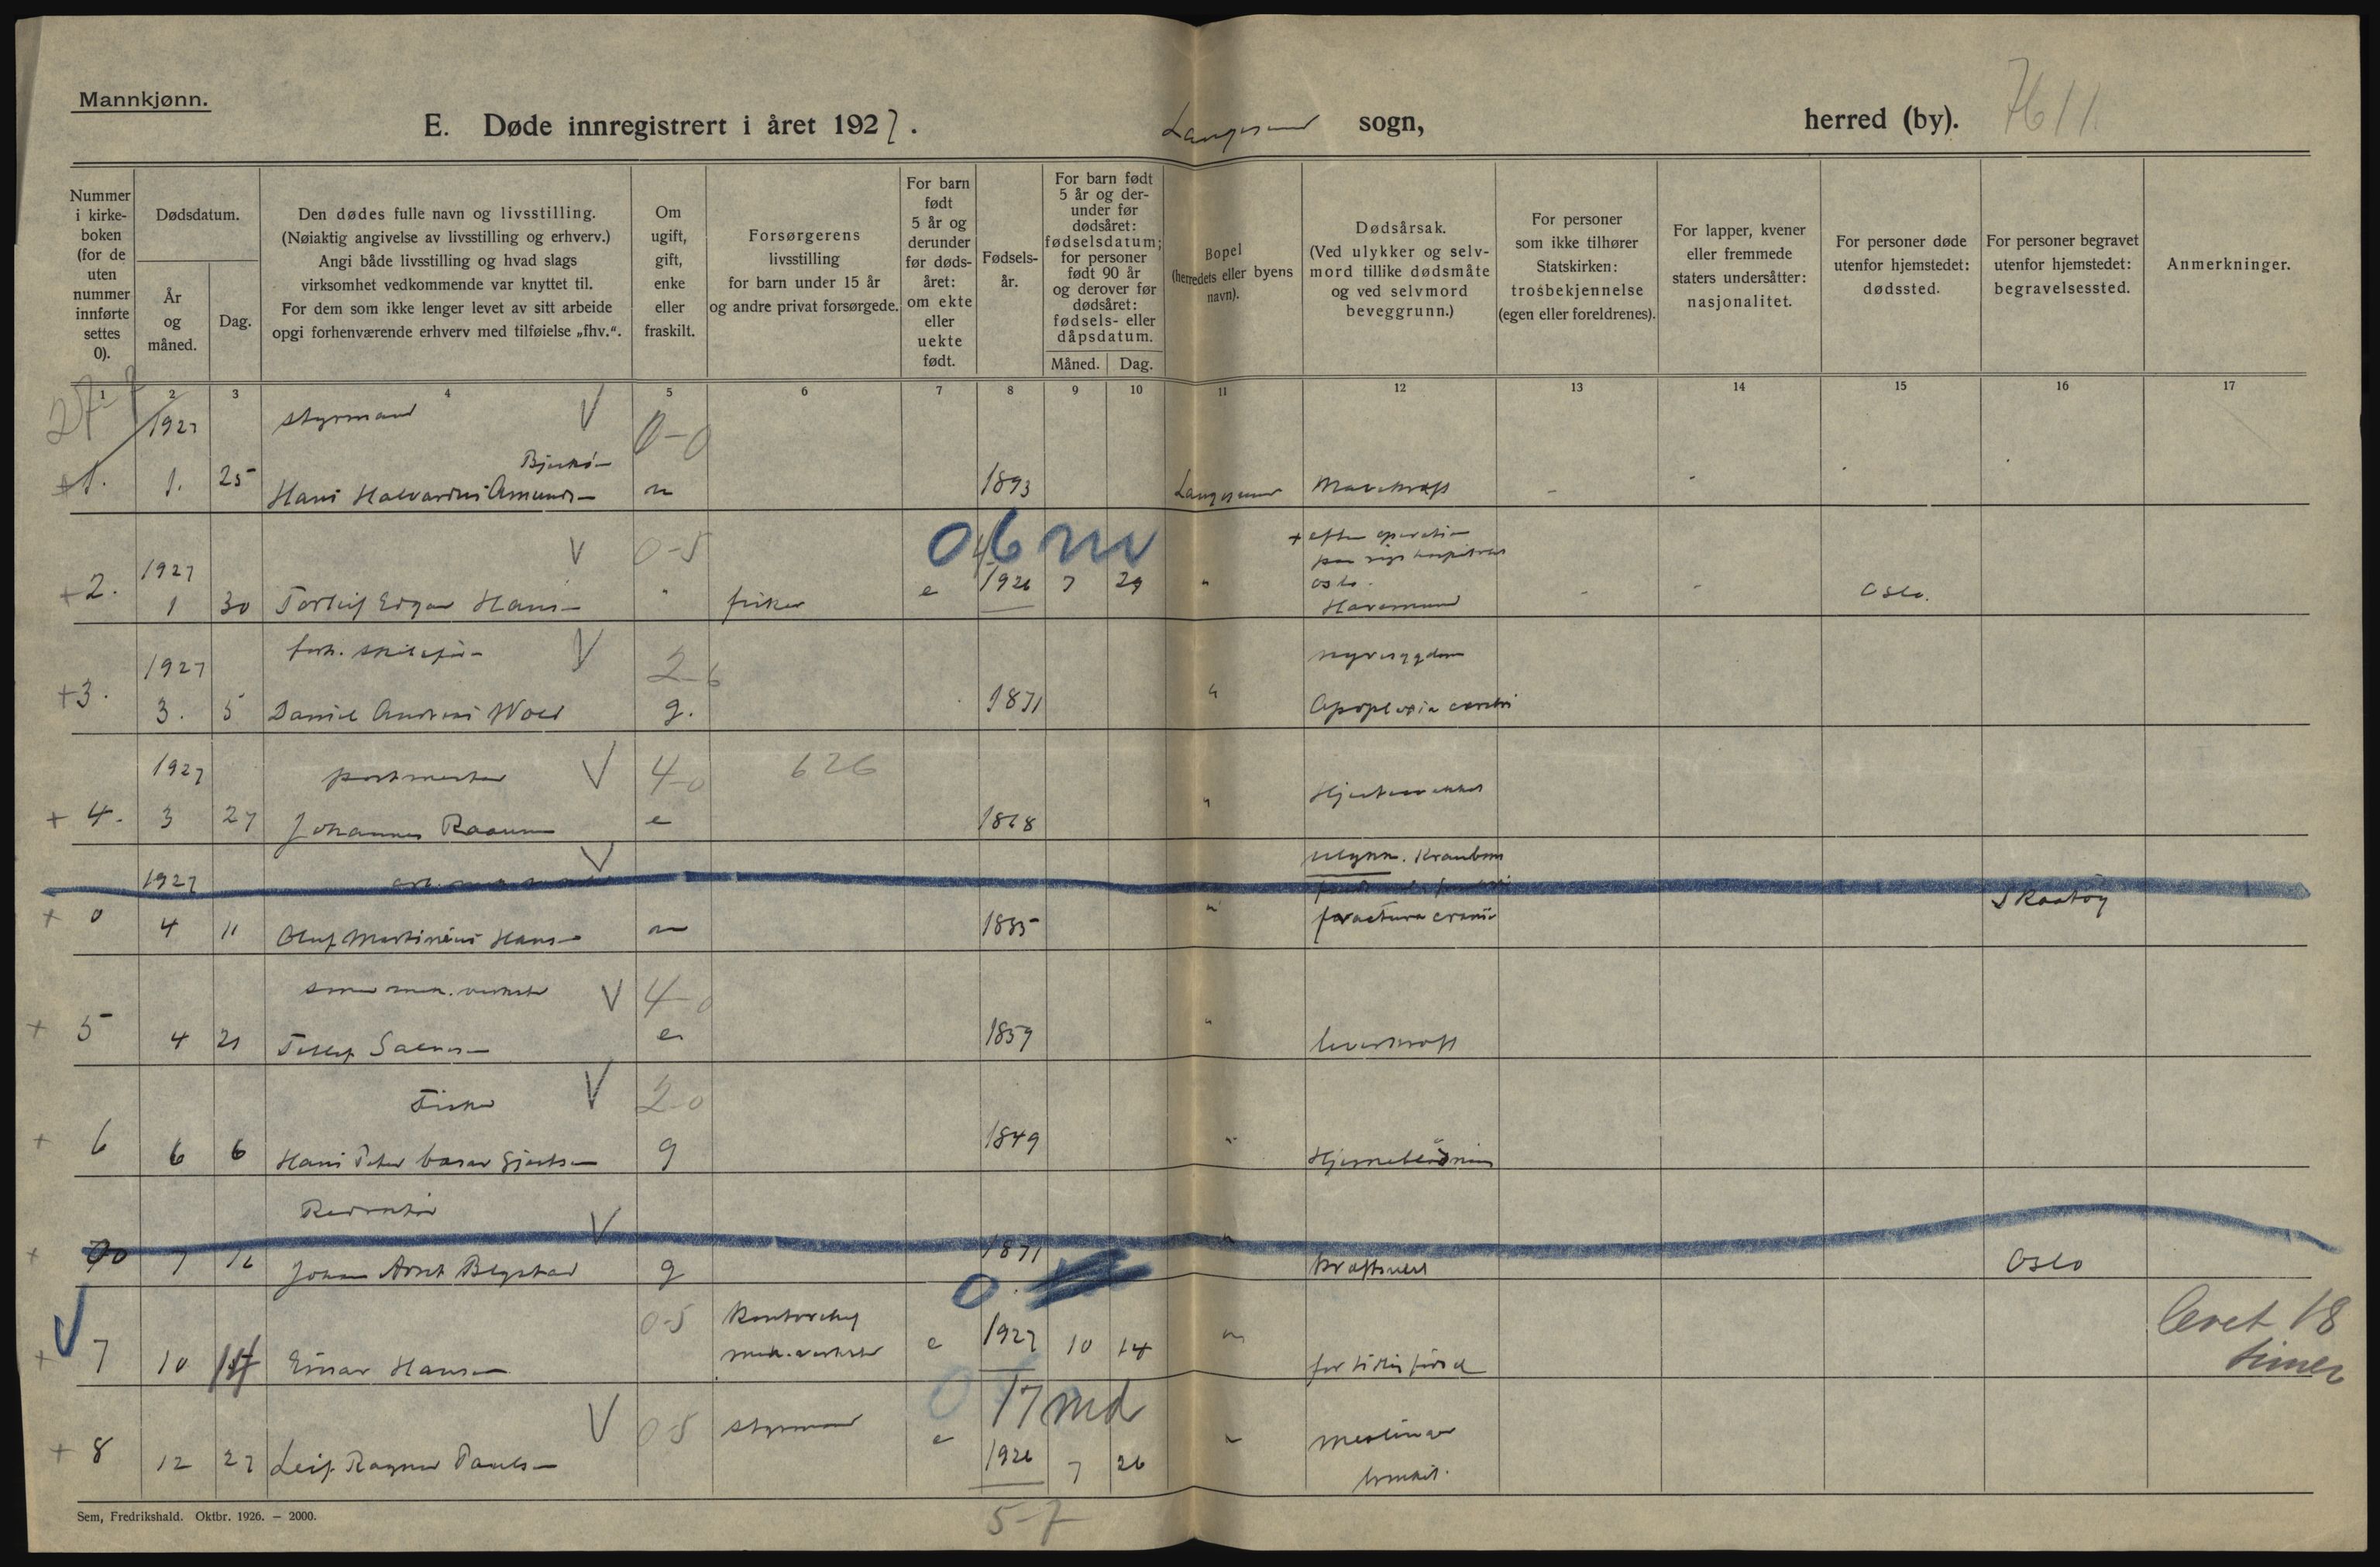 Mannkjønn.
E. Døde innregistrert i året 1927.
Langesund sogn,
herred (by). 7611
Nummer i kirke- boken (for de uten nummer innførte settes 0).
Dødsdatum.
År og måned.
Dag.
Den dødes fulle navn og livsstilling.
(Nøiaktig angivelse av livsstilling og erhverv.)
Angi både livsstilling og hvad slags
virksomhet vedkommende var knyttet til.
For dem som ikke lenger levet av sitt arbeide
opgi forhenværende erhverv med tilføielse „fhv.“.
Om ugift, gift, enke eller fraskilt.
Forsørgerens
livsstilling
for barn under 15 år
og andre privat forsørgede.
For barn født 5 år og derunder før døds- året: om ekte eller uekte født.
Fødsels- år.
For barn født 5 år og der- under før dødsåret: fødselsdatum; for personer født 90 år og derover før dødsåret: fødsels- eller dåpsdatum.
Måned.
Dag.
Bopel
(herredets eller byens
navn).
Dødsårsak.
(Ved ulykker og selv-
mord tillike dødsmåte
og ved selvmord
beveggrunn.)
For personer
som ikke tilhører
Statskirken:
trosbekjennelse
(egen eller foreldrenes).
For lapper, kvener
eller fremmede
staters undersåtter:
nasjonalitet.
For personer døde
utenfor hjemstedet:
dødssted.
For personer begravet
utenfor hjemstedet:
begravelsessted.
Anmerkninger.
1 2 3 4 5 6 7 8 9 10 11 12 13 14 15 16 17
27
1927 styrmand V 0-0
+1. 1. 25 Hans Halvardus Amunds- 1893 Langesund Mavekræft
V 0-5 06 m + efter operation
1927 paa rigshospitalet
+2. 1 30 Torleif Edgar Hans- " fisker e 1926 7 29 " Oslo. Oslo.
Haremund
1927 forh. V 2-6 nyresygdom
+3. 3. 5 Daniel Andreas Wold g. 1871 " Apoplexia cerebri
1927 postmester V 4-0 626
+ 4. 3 27 Johannes Raaum e 1868 "
1927 V
+ 0 4 11 Oluf Martinius Hans- 1885 " fractura cranii Skaatøy
mek. verksted V 4-0
+ 5 4 21 Tellef 1859 " leverkræft
Fisker V 2-0
+ 6 6 6 Hans Peter g 1849 " Hjerneblødning
Redaktør V
+ 0 7 12 Johan Arnt Bergstad g 1871 " Oslo
V 0-5 Kontorchef 0 levet 18
+ 7 10 Einar Hansen mek. verksted e 1927 10 14 " for tidlig født timer
V 0-5 styrmand 17 md
+ 8 12 27 Leif Ragnar Pauls- e 1926 7 26 " Meslinger
bronkit.
5-7
Sem, Fredrikshald. Oktbr. 1926. – 2000.